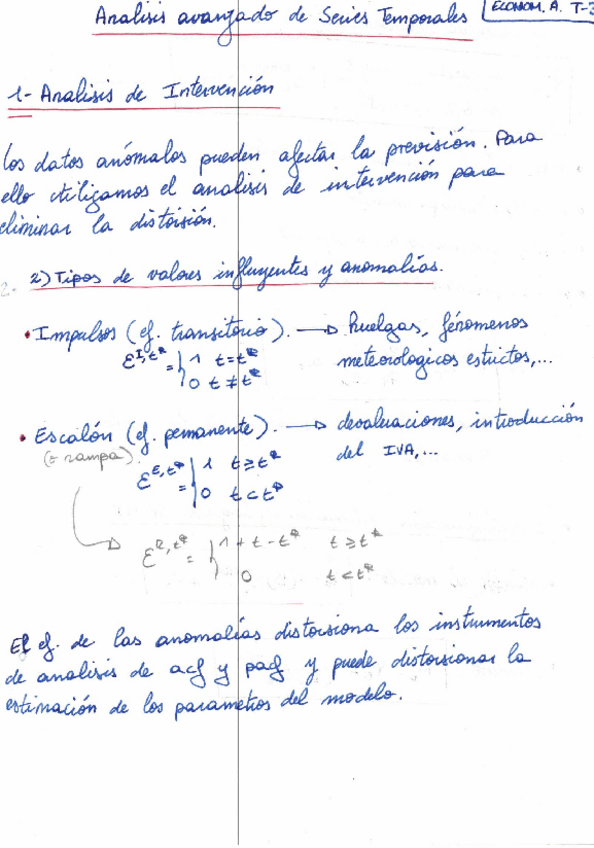 Analisis avanzado de Series Temporales
ECONOM. A. T-3
1- Analisis de Intervención
Los datos anómalos pueden afectar la previsión. Para
ello utilizamos el analisis de intervención para
eliminar la distorsión.
2) Tipos de valores influyentes y anomalías.
• Impulsos (ef. transitorio). → huelgas, fénomenos
meteorologicos estrictos,...
ε^{I,t*} = { 1 t=t*
0 t≠t*
• Escalón (ef. permanente). → devaluaciones, introducción
(± rampa). del IVA,...
ε^{E,t*} = { 1 t≥t*
0 t<t*
ε^{R,t*} = { 1+t-t* t≥t*
0 t<t*
El ef. de las anomalías distorsiona los instrumentos
de analisis de acf y pacf y puede distorsionar la
estimación de los parametros del modelo.